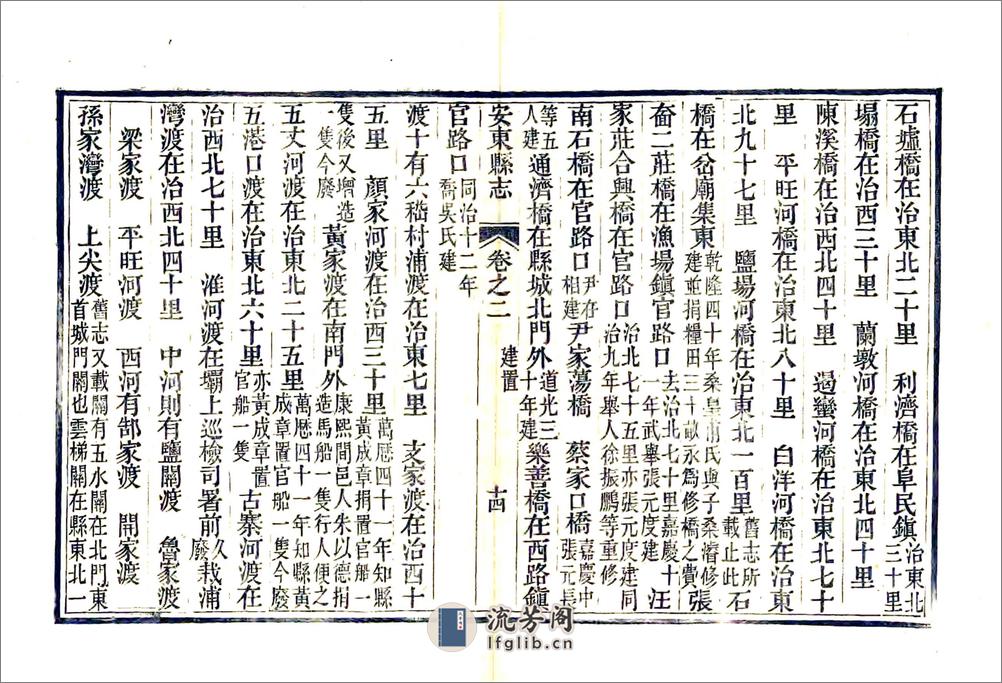 石墟橋在治東北二十里　利濟橋在阜民鎮治東北三十里
塌橋在治西三十里　蘭墩河橋在治東北四十里
陳溪橋在治西北四十里　遏蠻河橋在治東北七十
里　平旺河橋在治東北八十里　白洋河橋在治東
北九十七里　鹽場河橋在治東北一百里舊志所載止此石
橋在岔廟集東乾隆四十年桑皇甫氏與子桑濬修建並捐糧田三十畝永為修橋之費張
奤二莊橋在漁場鎮官路口去治北七十里嘉慶十一年武舉張元度建汪
家莊合興橋在官路口治北七十五里亦張元度建同治九年舉人徐振鵬等重修
南石橋在官路口尹存相建尹家蕩橋　蔡家口橋嘉慶中張元長
等五人建通濟橋在縣城北門外道光三十年建樂善橋在西路鎮
安東縣志　卷之二　建置　十四
官路口同治十二年喬吳氏建
渡十有六嵇村浦渡在治東七里　支家渡在治西十
五里　顏家河渡在治西三十里萬厯四十一年知縣黃成章捐置官船一
隻後又增造一隻今廢黃家渡在南門外康熙間邑人朱以德捐造馬船一隻行人便之
五丈河渡在治東北二十五里萬厯四十一年知縣黃成章置官船一隻今廢
五港口渡在治東北六十里亦黃成章置官船一隻古寨河渡在
治西北七十里　淮河渡在壩上巡檢司署前久廢栽浦
灣渡在治西北四十里　中河則有鹽關渡　魯家渡
梁家渡　平旺河渡　西河有郜家渡　開家渡
孫家灣渡　上尖渡舊志又載關有五水關在北門東首城門關也雲梯關在縣東北一
流芳阁
lfglib.cn